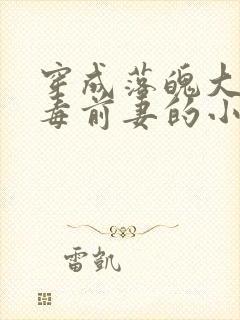 穿成落魄大
毒前妻的小
雷凯